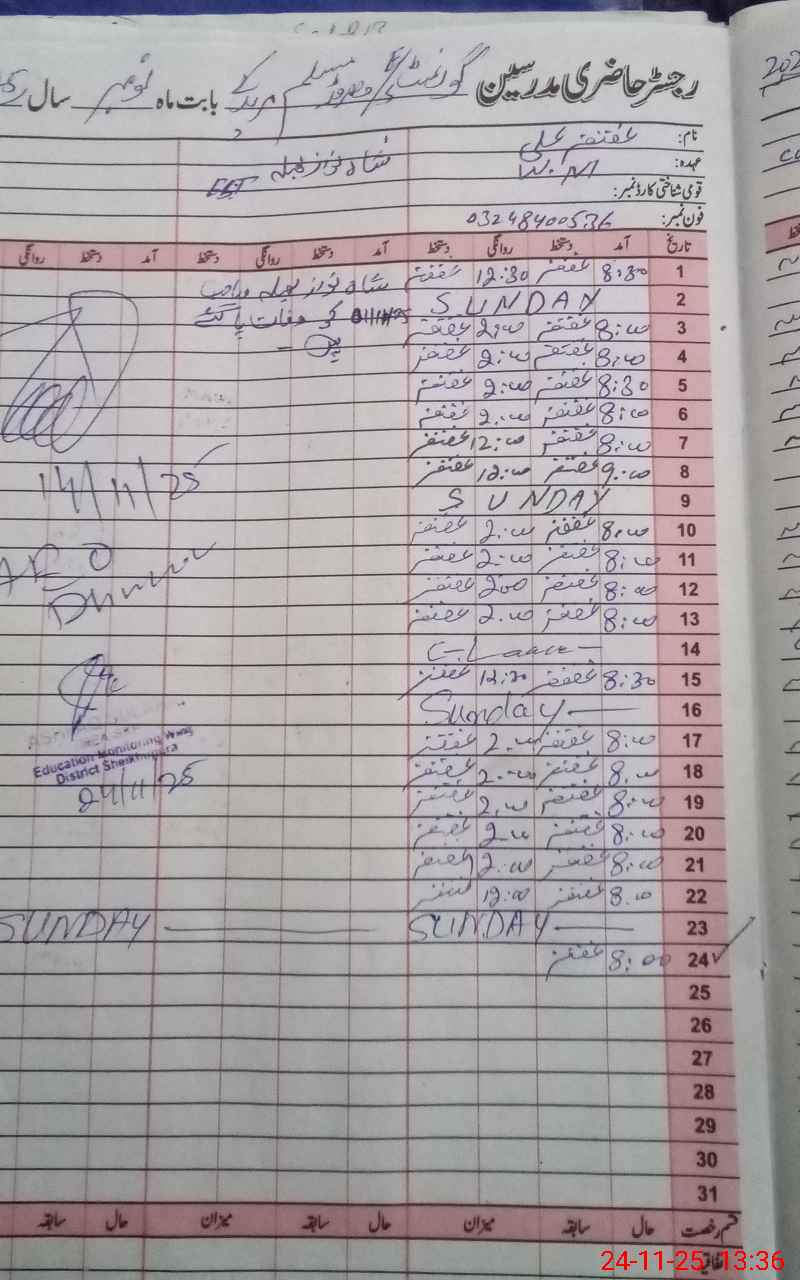 رجسٹر حاضری مدرسین گورنمنٹ مسلم مریدکے بابت ماہ نومبر سال
نام: غضنفر علی
عہدہ: W.M شاہ نواز بھیلہ EST
قومی شناختی کارڈ نمبر:
فون نمبر: 03248400536
تاریخ آمد دستخط روانگی دستخط آمد دستخط روانگی دستخط آمد دستخط روانگی
1 8:30 غضنفر 12:30 غضنفر شاہ نواز بھیلہ صاحب
2 SUNDAY 01/11/25 کو وفات پا گئے
3 8:00 غضنفر 2:00 غضنفر ہیں۔
4 8:00 غضنفر 2:00 غضنفر
5 8:30 غضنفر 2:00 غضنفر
6 8:00 غضنفر 2:00 غضنفر
7 8:00 غضنفر 12:00 غضنفر
8 9:00 غضنفر 12:00 غضنفر 14/11/25
9 SUNDAY
10 8:00 غضنفر 2:00 غضنفر
11 8:00 غضنفر 2:00 غضنفر AEO
12 8:00 غضنفر 200 غضنفر
13 8:00 غضنفر 2:00 غضنفر
14 C-Leave
15 8:30 غضنفر 12:30 غضنفر
16 Sunday
17 8:00 غضنفر 2:00 غضنفر
Education Monitoring Wing
District Sheikhupura
18 8:00 غضنفر 2:00 غضنفر
24/11/25
19 8:00 غضنفر 2:00 غضنفر
20 8:00 غضنفر 2:00 غضنفر
21 8:00 غضنفر 2:00 غضنفر
22 8:00 غضنفر 12:00 غضنفر
23 SUNDAY SUNDAY
24 8:00 غضنفر
25
26
27
28
29
30
31
قسم رخصت حال سابقہ میزان حال سابقہ میزان حال سابقہ
اتفاقیہ
24-11-25 13:36